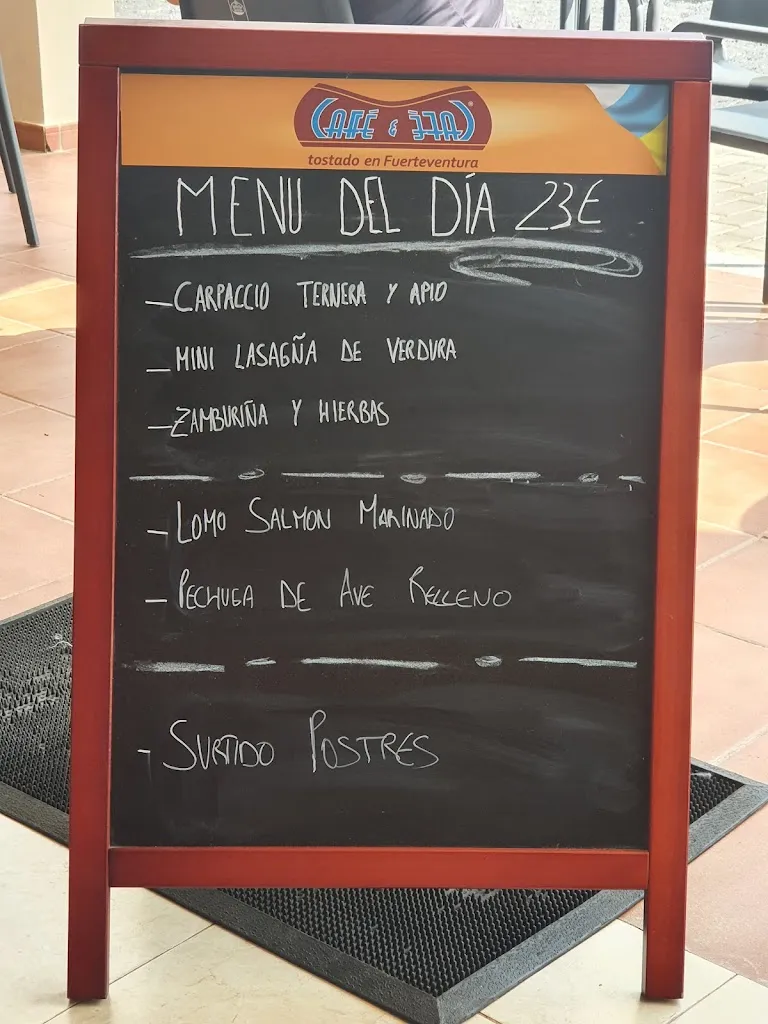 CAFÉ & ÉFAC
tostado en Fuerteventura
MENU DEL DÍA 23€
- CARPACCIO TERNERA Y APIO
- MINI LASAGÑA DE VERDURA
- ZAMBURIÑA Y HIERBAS
- LOMO SALMON MARINADO
- PECHUGA DE AVE RELLENO
- SURTIDO POSTRES